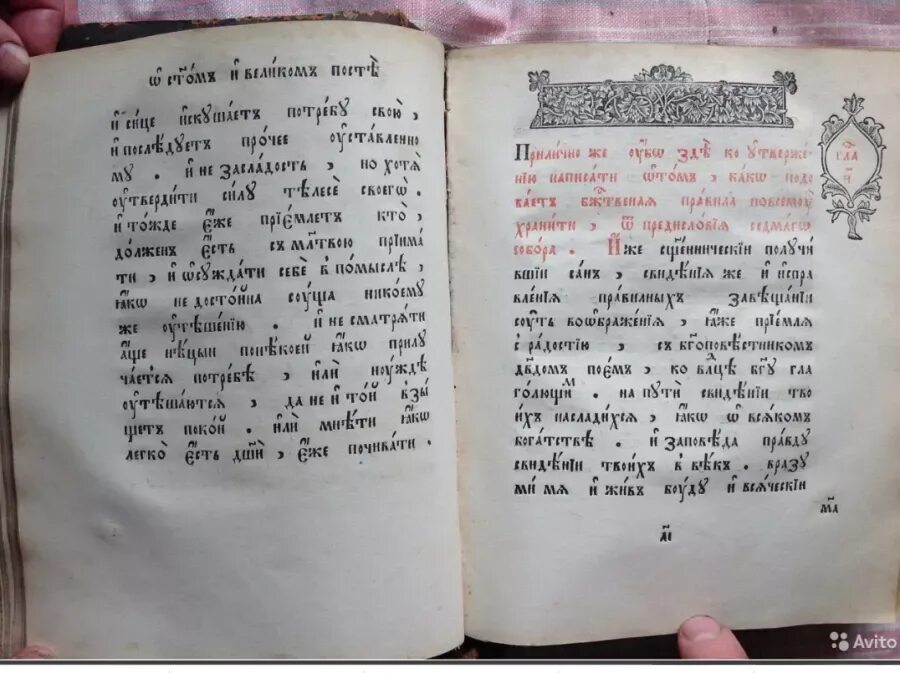 Ѡ ст҃омъ и҆ вели́комъ постѣ̀
и҆ си́це и҆скꙋша́етъ потре́бꙋ свою̀,
и҆ послѣ́дꙋетъ про́чее оу҆ста́вленно
мꙋ . и҆ не за сла́дость , но хотѧ̀
оу҆тверди́ти си́лꙋ тѣ́лесе своегѡ̀ .
и҆ то́жде є҆́же прїе́млетъ кто̀ ,
до́лженъ є҆́сть с мл҃твою прїима́
ти , и҆ ѡ҆сꙋжда́ти себѐ в по́мыслѣ ,
ꙗ҆́кѡ не досто́йна сꙋ́ща никоемꙋ
же оу҆тѣше́нїю . и҆ не сматрѧ́ти
а҆́ще нѣ́цыи по нѣ́коей ꙗ҆́кѡ прилꙋ
ча́етсѧ потре́бѣ , и҆лѝ нꙋ́ждѣ
оу҆тѣша́ютсѧ , да не и҆ то́й взы́
щетъ поко́й . и҆лѝ мнѣ́ти ꙗ҆́кѡ
легко̀ є҆́сть дш҃и , є҆́же почива́ти .
Прили́чно же оу҆́бѡ здѣ̀ ко оу҆твержє
нїю написа́ти ѡ҆ то́мъ , ка́кѡ подо
ба́етъ бж҃твеная пра́вила повсемꙋ̀
храни́ти , ѿ предисло́вїѧ седма́гѡ
собо́ра . И҆́же сщ҃е́нническїи полꙋчи́
вшїи са́нъ , свидѣ́нїѧ же и҆ и҆спра
вле́нїѧ пра́вилныхъ завѣща́нїи
сꙋ́ть воѡбраже́нїѧ , ꙗ҆́же прїе́млѧ
с ра́достїю , съ бг҃оповѣ́стникомъ
дв҃домъ пое́мъ , ко влⷣцѣ бг҃ꙋ гла
го́лющиⷨ . на пꙋтѝ свидѣ́нїи тво
и́хъ наслади́хсѧ , ꙗ҆́кѡ ѡ҆ всѧ́комъ
бога́тствѣ . и҆ заповѣ́да пра́вдꙋ
свидѣ́нїи твои́хъ в вѣ́къ . вразꙋ
мѝ мѧ̀ и҆ жи́въ бꙋ́дꙋ и҆ всѧ́ческїи
гла
и҃
м҃а
а҃і
Avito